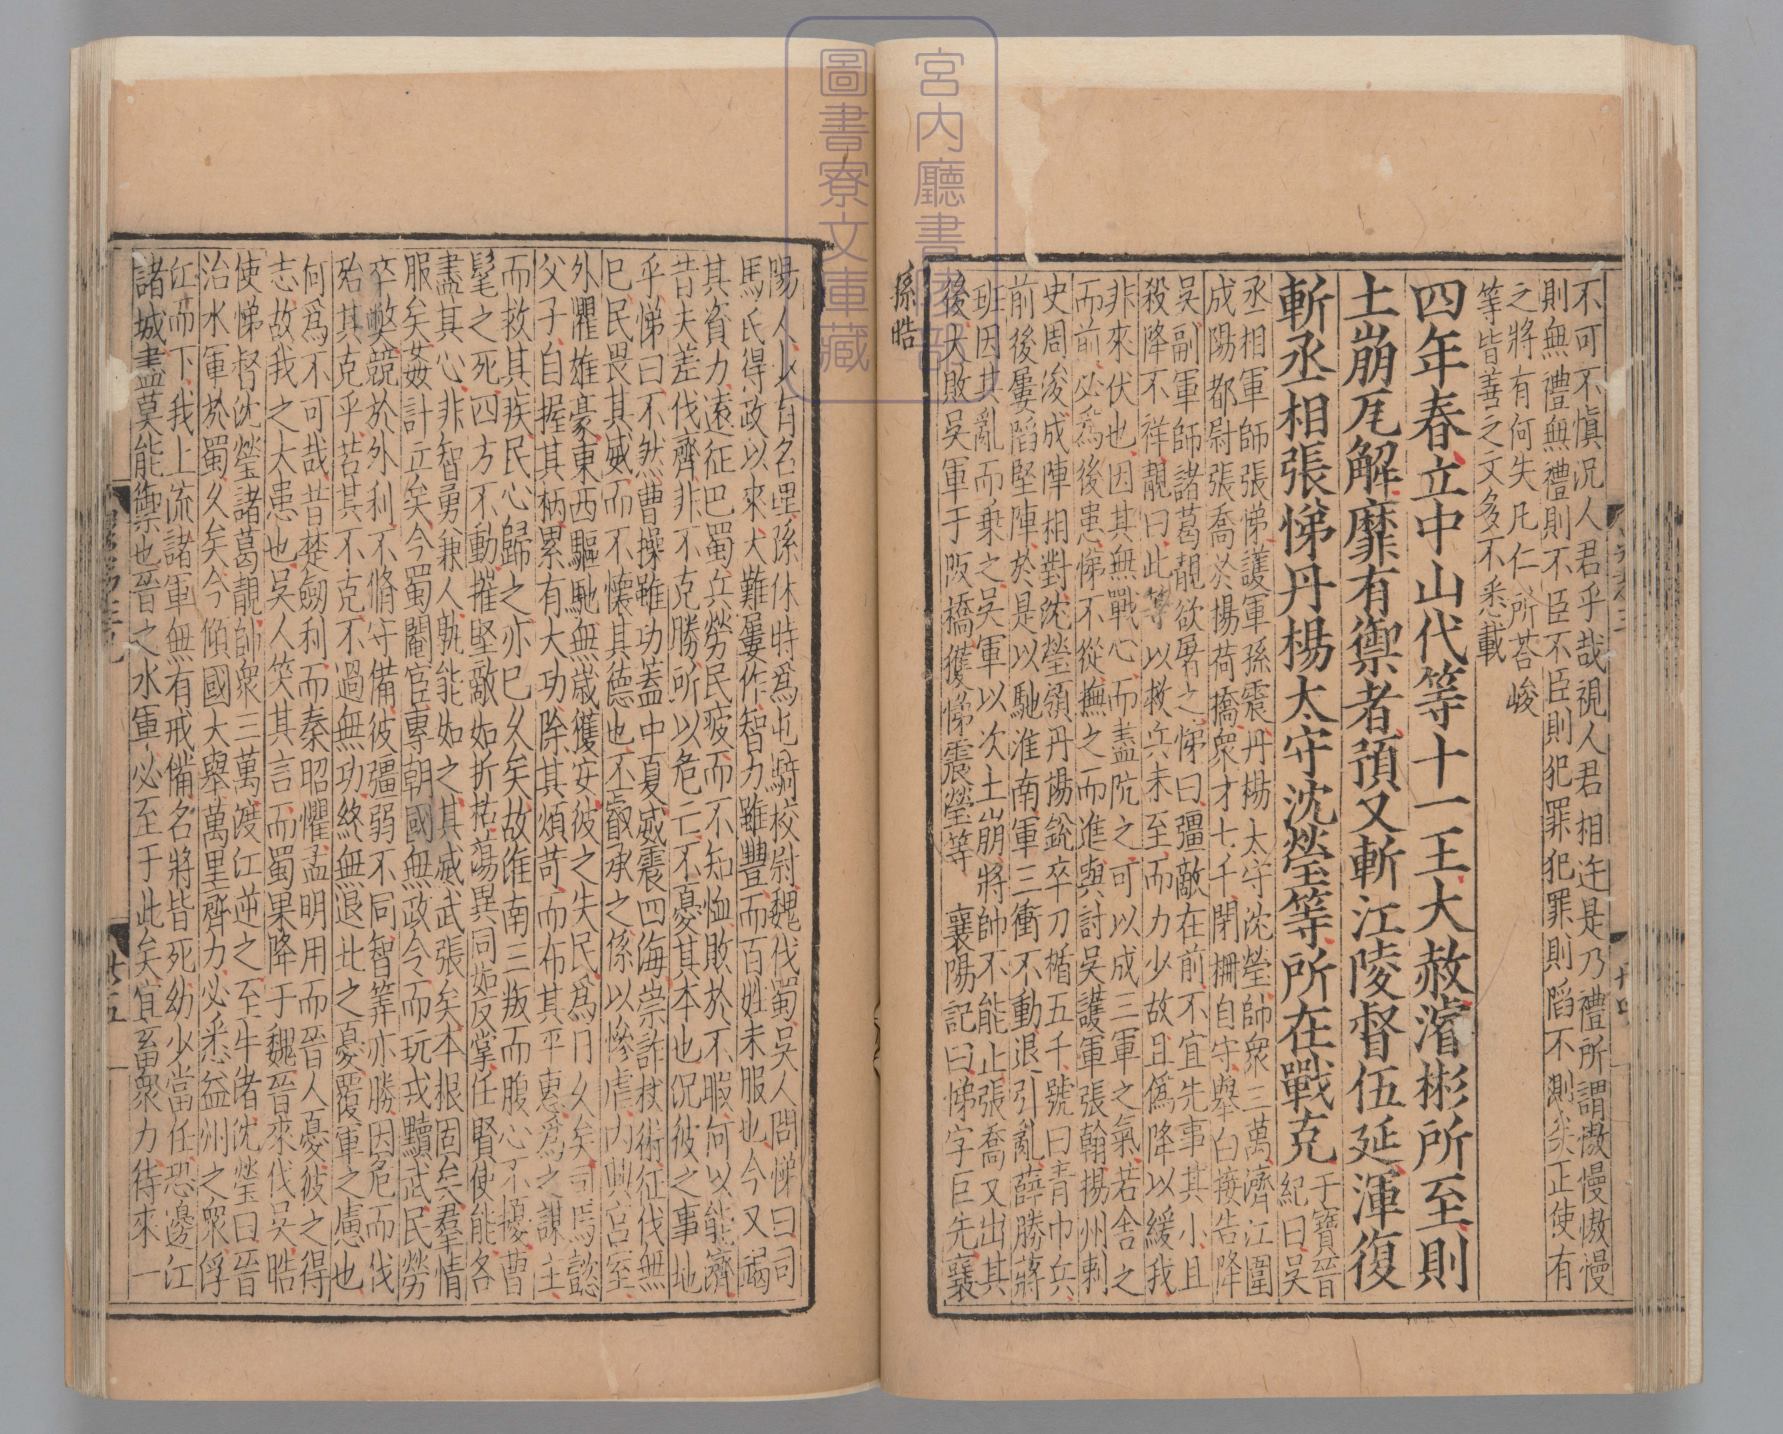 不可不慎況人君乎哉視人君相迕是乃禮所謂慠慢慠慢
則無禮無禮則不臣不臣則犯罪犯罪則陷不測矣正使有
之將有何失凡仁所荅峻
等皆善之文多不悉載
四年春立中山代等十一王大赦濬彬所至則
土崩瓦解靡有禦者預又斬江陵督伍延渾復
斬丞相張悌丹楊太守沈瑩等所在戰克
干寶晉
紀曰吳
丞相軍師張悌護軍孫震丹楊太守沈瑩帥衆三萬濟江圍
成陽都尉張喬於揚荷橋衆才七千閉柵自守舉白接告降
吳副軍師諸葛靚欲屠之悌曰彊敵在前不宜先事其小且
殺降不祥靚曰此等以救兵未至而力少故且偽降以緩我
非來伏也因其無戰心而盡阬之可以成三軍之氣若舍之
而前必爲後患悌不從撫之而進與討吳護軍張翰揚州刺
史周浚成陣相對沈瑩領丹楊銳卒刀楯五千號曰青巾兵
前後屢䧟堅陣於是以馳淮南軍三衝不動退引亂薛勝蔣
班因其亂而乗之吳軍以次土崩將帥不能止張喬又出其
後大敗吳軍于阪橋獲悌震瑩等　襄陽記曰悌字巨先襄
孫晧
陽人少有名理孫休時爲屯騎校尉魏伐蜀吳人問悌曰司
馬氏得政以來大難屢作智力雖豐而百姓未服也今又竭
其資力遠征巴蜀兵勞民疲而不知恤敗於不暇何以能濟
昔夫差伐齊非不克勝所以危亡不憂其本也況彼之事地
乎悌曰不然曹操雖功蓋中夏威震四海崇詐杖術征伐無
已民畏其威而不懷其德也丕叡承之係以慘虐内興宮室
外懼雄豪東西驅馳無歲獲安彼之失民爲日乆矣司馬懿
父子自握其柄累有大功除其煩苛而布其平惠爲之謀主
而救其疾民心歸之亦已乆矣故淮南三叛而腹心不擾曹
髦之死四方不動摧堅敵如折枯蕩異同如反掌任賢使能各
盡其心非智勇兼人孰能如之其威武張矣本根固矣羣情
服矣姦計立矣今蜀閹宦專朝國無政令而玩戎黷武民勞
卒弊競於外利不脩守備彼彊弱不同智筭亦勝因危而伐
殆其克乎若其不克不過無功終無退北之憂覆軍之慮也
何爲不可哉昔楚劒利而秦昭懼孟明用而晉人憂彼之得
志故我之大患也吳人笑其言而蜀果降于魏晉來伐吳晧
使悌督沈瑩諸葛靚帥衆三萬渡江逆之至牛渚沈瑩曰晉
治水軍於蜀久矣今傾國大舉萬里齊力必悉益州之衆浮
江而下我上流諸軍無有戒備名將皆死幼少當任恐邊江
諸城盡莫能禦也晉之水軍必至于此矣宜畜衆力待來一
廿五
宮内廳書陵部
圖書寮文庫藏